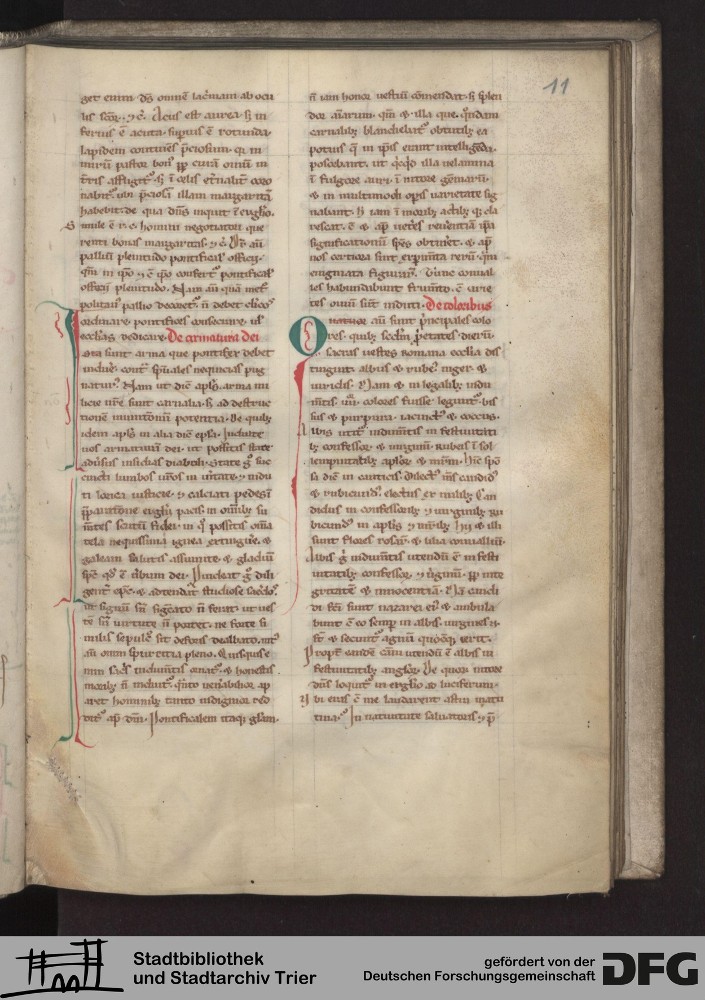 11
get eum. ds omnē lac̄mam ab ocu
lis scōꝝ. ⁊ c̄. Acus est aurea. s; in
ferius ē acuta. suꝑius ē rotunda.
lapidem continēs p̄ciosum. qr in
mirū pastor bon⁹ ꝓp curā ouiū in
t̄ris affligit᷑. s; ī celis et̄nalit̄ coro
nabit᷑. ubi p̄ciosā illam margaritā
habebit. de qua dn̄s inquit ī eugl̄io.
Simile ē r. c. homini negotiatori que
renti bonas margaritas. ⁊ c̄. Dr̄ aū
pallii plenitudo pontifical᷑ officij.
qm̄ in ip̄o ⁊ c̄ ip̄o confert᷑ pontifical᷑
officij plenitudo. Nam aū quā met᷑
politan⁹ pallio decoret᷑. n̄ debet clico⁹
ordinare. pontifices consecrare. ul̄
eccl̄ias dedicare. De armatura dei
Ista sunt arma que pontifex debet
induē. cont᷑ sp̄uales nequicias pug
natur⁹. Nam ut dic̄ apl̄s. arma mi
licie n̄re sunt carnalia. s; ad destruc
tionē munitionū potentia. De quib;
idem apl̄s in alia dic̄ ep̄la. Induite
uos armaturā dei. ut possitis stare
aduersus insidias diaboli. State g° suc
cincti lumbos ur̄os in ueritate. ⁊ indu
ti lorica iusticie. ⁊ calciati pedes ī
p̄paratione euglīi pacis. in om̄ib; su
m̄tes scutū fidei. in q° possitis om̄ia
tela nequissimi ignea extinguē. ⁊
galeam salutis assumite. ⁊ gladiū
sp̄c. qd̄ ē ūbum dei. Prudeat g° dili
gent̄ ep̄c. ⁊ adtendat studiose sac̄do⁹.
ut signū sn̄ signato n̄ ferat. ut ues
tē sn̄ uirtute n̄ portet. ne forte si
milis sepulc᷑ sit deforis dealbato. int⁹
aū omni spurcitia pleno. Quisquis e
nim sac̄s indum̄tis ornat᷑. ⁊ honestis
morib; n̄ induit᷑. q̄nto uen̄abilior ap
paret hominib; tanto indignior red
dit᷑ ap̄ dm̄. Pontificalem itaq; gl̄am.
n̄ iam honor uestiū cōmendat. s; splen
dor aīarum. qm̄ ⁊ illa que q̄ndam
carnalib; blandiebant᷑ obtutib; ea
potius q̄ in ip̄is erant intelligēda.
poscebant. ut qicq̄d illa uelamina
ī fulgore auri. ī nitore gēmarū.
⁊ in multimodi opis uarietate sig
nabant. h; iam ī morib; actib; q; cla
rescat. c̄ ⁊ ap̄ uetes reuerentiā ip̄a
significationū sp̄es obtinēt. ⁊ ap̄
nos certiora sint exp̄imta rerū. qm̄
enigmata figuraꝝ.
tes ouiū sūt inditi. De coloribus
Quatuor aū sunt p̄ncipales colo
res. quib; sc̄dm p̄etates dierū.
sacras uestes romana eccl̄ia dis
tinguit. albus ⁊ rube⁹. niger ⁊
uiridis. Nam ⁊ in legalib; indu
m̄tis. iiii. colores fuisse legunt᷑. bis
sus ⁊ purpura. iacinct⁹ ⁊ coccus.
Albis utit᷑ indum̄tis in festiuitati
b; confessoꝝ ⁊ uirginū. Rubeis ī sol
lempnitatib; apl̄oꝝ ⁊ mr̄m. Hic spō
sa dic̄ in canticis. Dilect⁹ m̄s candid⁹
⁊ rubicund⁹. electus ex milib;. Can
didus in confessorib; ⁊ uirginib;. ru
bicund⁹ in apl̄is ⁊ mr̄ib;. Hij ⁊ illi
sunt flores rosaꝝ. ⁊ lilia conualliū.
Albis g° indum̄tis utendū ē in festi
uitatib; confessoꝝ ⁊ uirginū. ꝓp inte
gritatē ⁊ innocentiā. Nā candi
di fc̄i sunt nazarei ei⁹. ⁊ ambula
bunt c̄ eo semꝑ in albis. uirgines n̄.
st̄. ⁊ secunt᷑ agnū quocūq; ierit.
Propt̄ eandē cām utendū ē albis in
festiuitatib; angl̄oꝝ. De quoꝝ nitore
dn̄s loquit᷑ in eugl̄io ad luciferum.
Vbi eras c̄ me laudarent astra matu
tina. ? In natiuitate saluatoris. ⁊ p̄
Stadtbibliothek
und Stadtarchiv Trier
gefördert von der
Deutschen Forschungsgemeinschaft
DFG